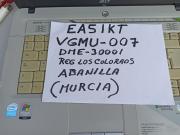 EASIKT
VGMU-007
DME-30001
REG LOS COLORAOS
ABANILLA
(MURCIA)